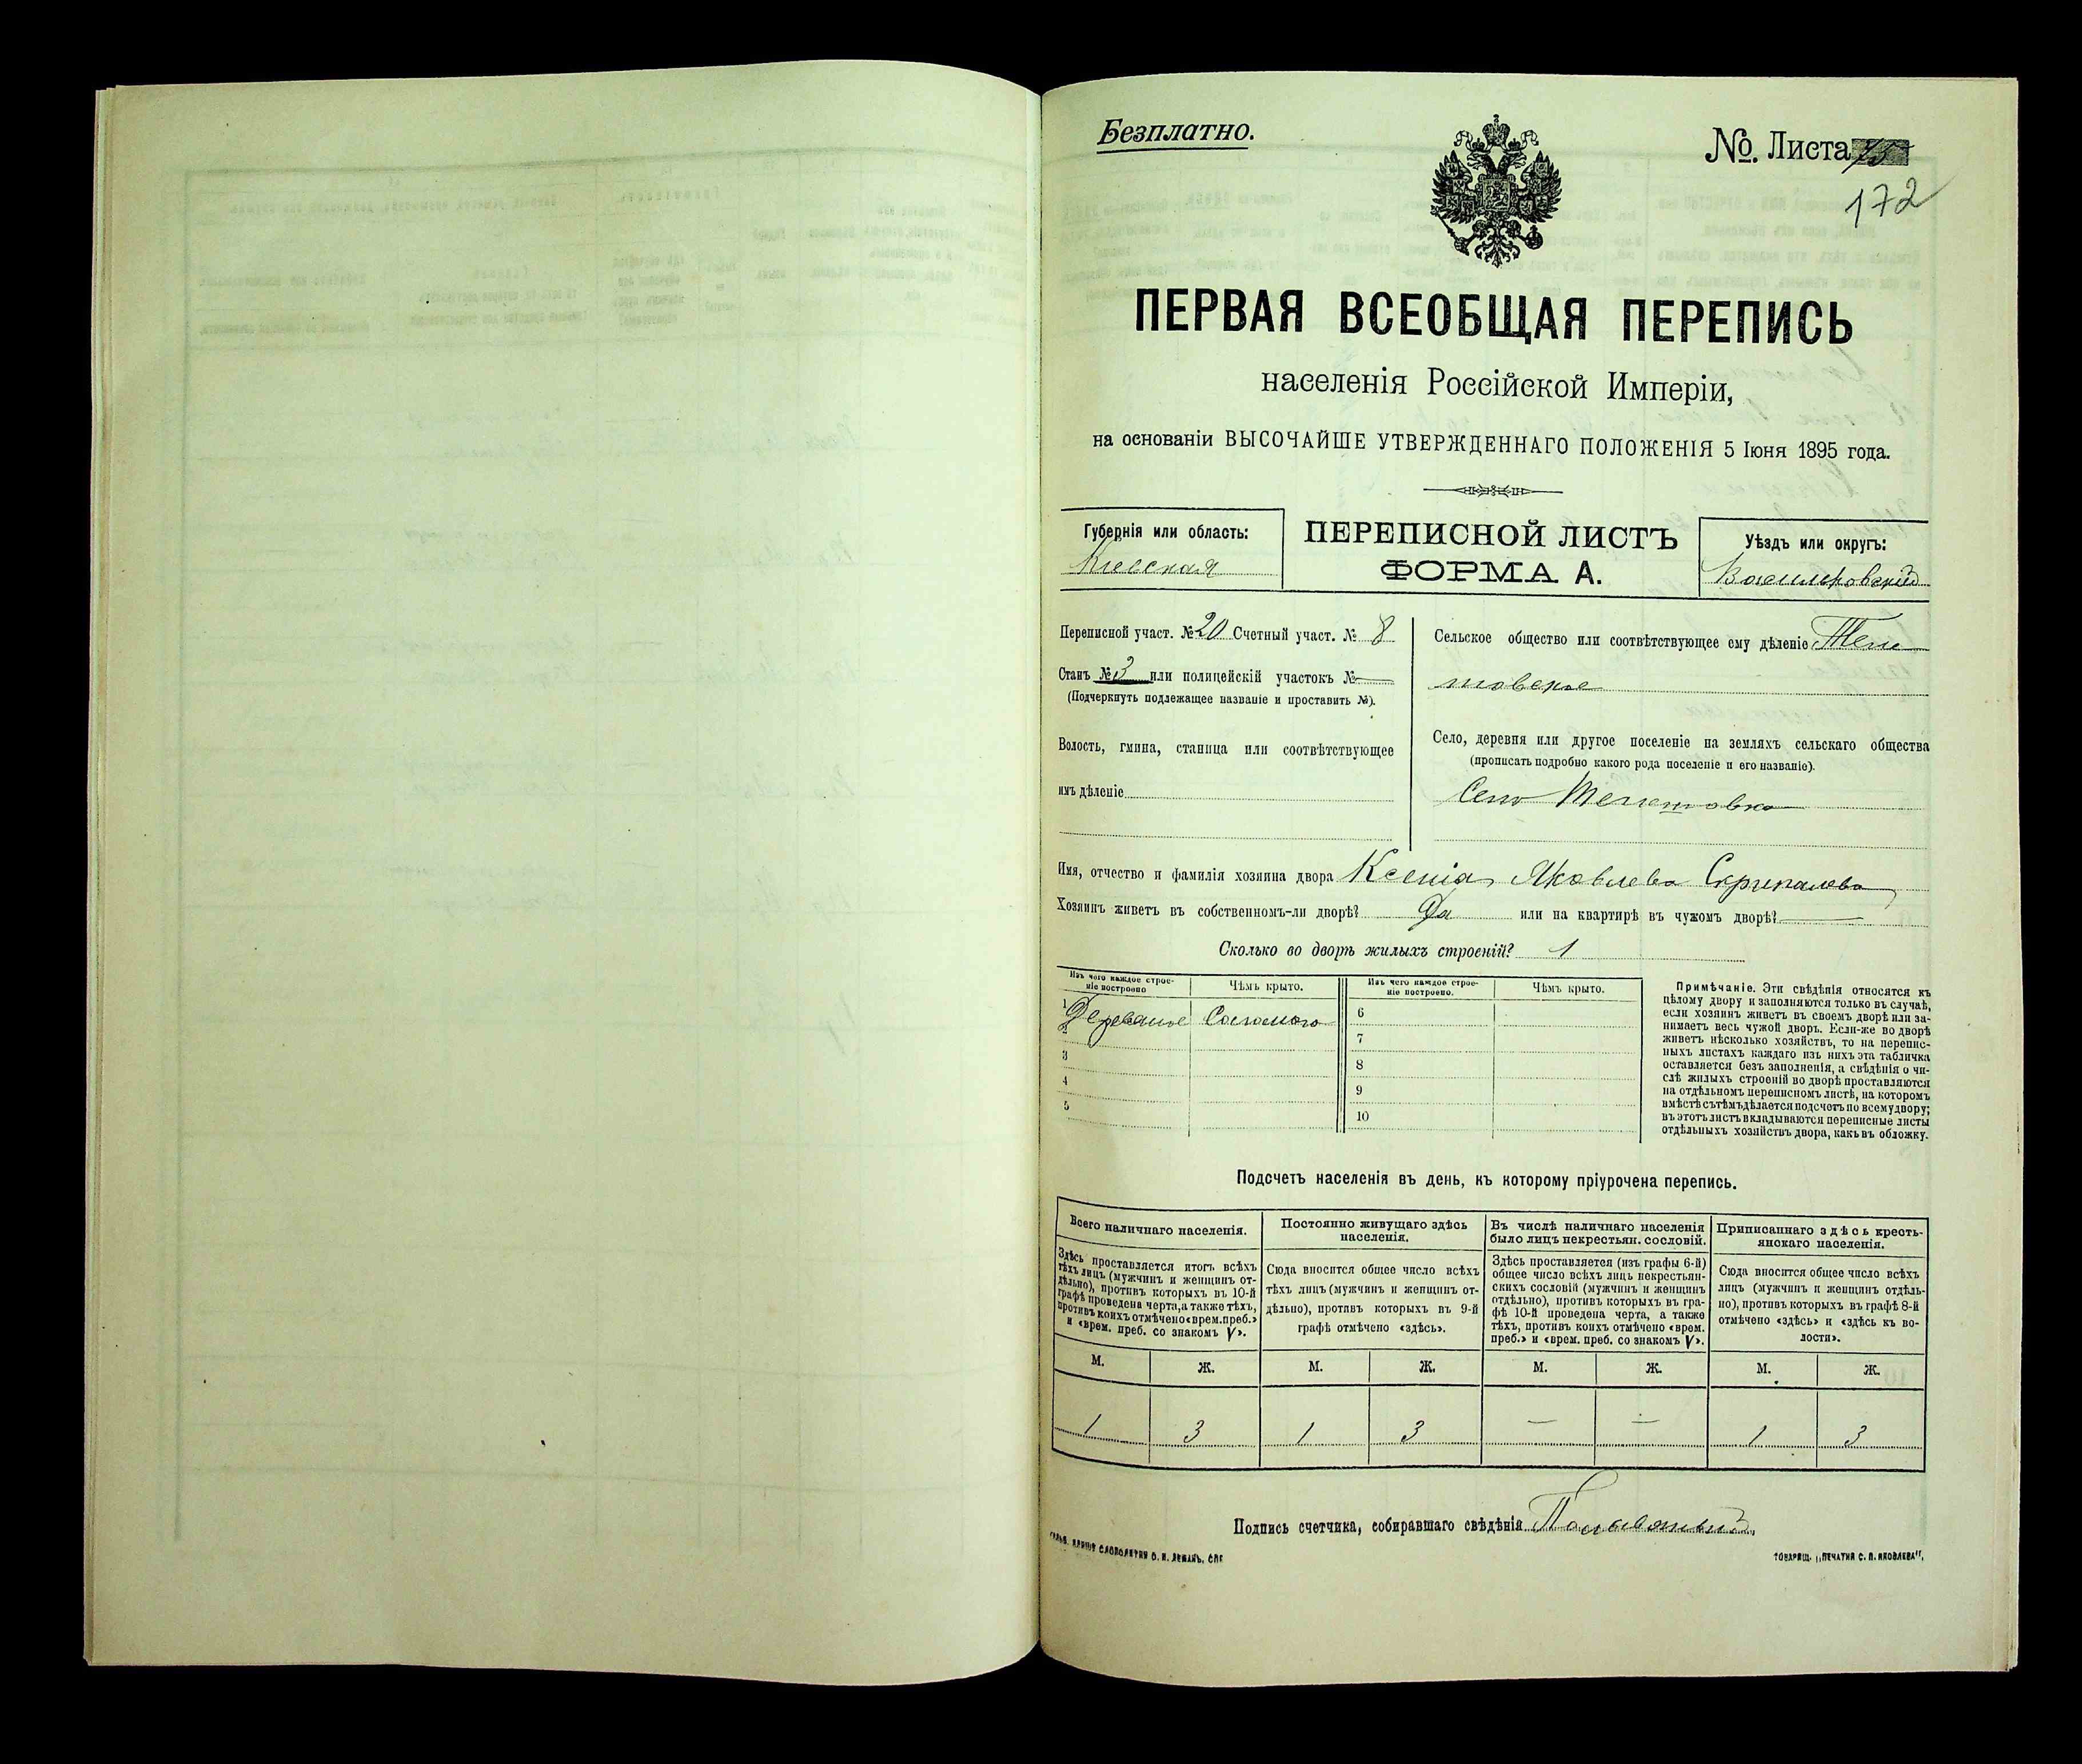 Безплатно.
№. Листа 75
172
ПЕРВАЯ ВСЕОБЩАЯ ПЕРЕПИСЬ
населенія Россійской Имперіи,
на основаніи ВЫСОЧАЙШЕ УТВЕРЖДЕННАГО ПОЛОЖЕНІЯ 5 Іюня 1895 года.
Губернія или область:
Кіевская
ПЕРЕПИСНОЙ ЛИСТЪ
ФОРМА А.
Уѣздъ или округъ:
Васильковскій
Переписной участ. № 20 Счетный участ. № 8
Станъ № 3 или полицейскій участокъ №
(Подчеркнуть подлежащее названіе и проставить №).
Волость, гмина, станица или соотвѣтствующее
имъ дѣленіе
Сельское общество или соотвѣтствующее ему дѣленіе Теле
шовское
Село, деревня или другое поселеніе на земляхъ сельскаго общества
(прописать подробно какого рода поселеніе и его названіе).
Село Телешовка
Имя, отчество и фамилія хозяина двора Ксенія Яковлева Скрипалева
Хозяинъ живетъ въ собственномъ-ли дворѣ? Да или на квартирѣ въ чужомъ дворѣ?
Сколько во дворѣ жилыхъ строеній? 1
Изъ чего каждое строе-
ніе построено
Чѣмъ крыто.
Изъ чего каждое строе-
ніе построено.
Чѣмъ крыто.
1 Деревяное Соломою
2
3
4
5
6
7
8
9
10
Примѣчаніе. Эти свѣдѣнія относятся къ
цѣлому двору и заполняются только въ случаѣ,
если хозяинъ живетъ въ своемъ дворѣ или за-
нимаетъ весь чужой дворъ. Если-же во дворѣ
живетъ нѣсколько хозяйствъ, то на перепис-
ныхъ листахъ каждаго изъ нихъ эта табличка
оставляется безъ заполненія, а свѣдѣнія о чи-
слѣ жилыхъ строеній во дворѣ проставляются
на отдѣльномъ переписномъ листѣ, на которомъ
вмѣстѣ съ тѣмъ дѣлается подсчетъ по всему двору;
въ этотъ листъ вкладываются переписные листы
отдѣльныхъ хозяйствъ двора, какъ въ обложку.
Подсчетъ населенія въ день, къ которому пріурочена перепись.
Всего наличнаго населенія.
Здѣсь проставляется итогъ всѣхъ
тѣхъ лицъ (мужчинъ и женщинъ от-
дѣльно), противъ которыхъ въ 10-й
графѣ проведена черта, а также тѣхъ,
противъ коихъ отмѣчено «врем. преб.»
и «врем. преб. со знакомъ V».
Постоянно живущаго здѣсь
населенія.
Сюда вносится общее число всѣхъ
тѣхъ лицъ (мужчинъ и женщинъ от-
дѣльно), противъ которыхъ въ 9-й
графѣ отмѣчено «здѣсь».
Въ числѣ наличнаго населенія
было лицъ некрестьян. сословій.
Здѣсь проставляется (изъ графы 6-й)
общее число всѣхъ лицъ некрестьян-
скихъ сословій (мужчинъ и женщинъ
отдѣльно), противъ которыхъ въ гра-
фѣ 10-й проведена черта, а также
тѣхъ, противъ коихъ отмѣчено «врем.
преб.» и «врем. преб. со знакомъ V».
Приписаннаго здѣсь кресть-
янскаго населенія.
Сюда вносится общее число всѣхъ
лицъ (мужчинъ и женщинъ отдѣль-
но), противъ которыхъ въ графѣ 8-й
отмѣчено «здѣсь» и «здѣсь къ во-
лости».
М. Ж. М. Ж. М. Ж. М. Ж.
1 3 1 3 — — 1 3
Подпись счетчика, собиравшаго свѣдѣнія
СЛОВОЛИТНИ О. И. ЛЕМАНЪ, СПБ
ТОВАРИЩ. „ПЕЧАТНЯ С. П. ЯКОВЛЕВА".